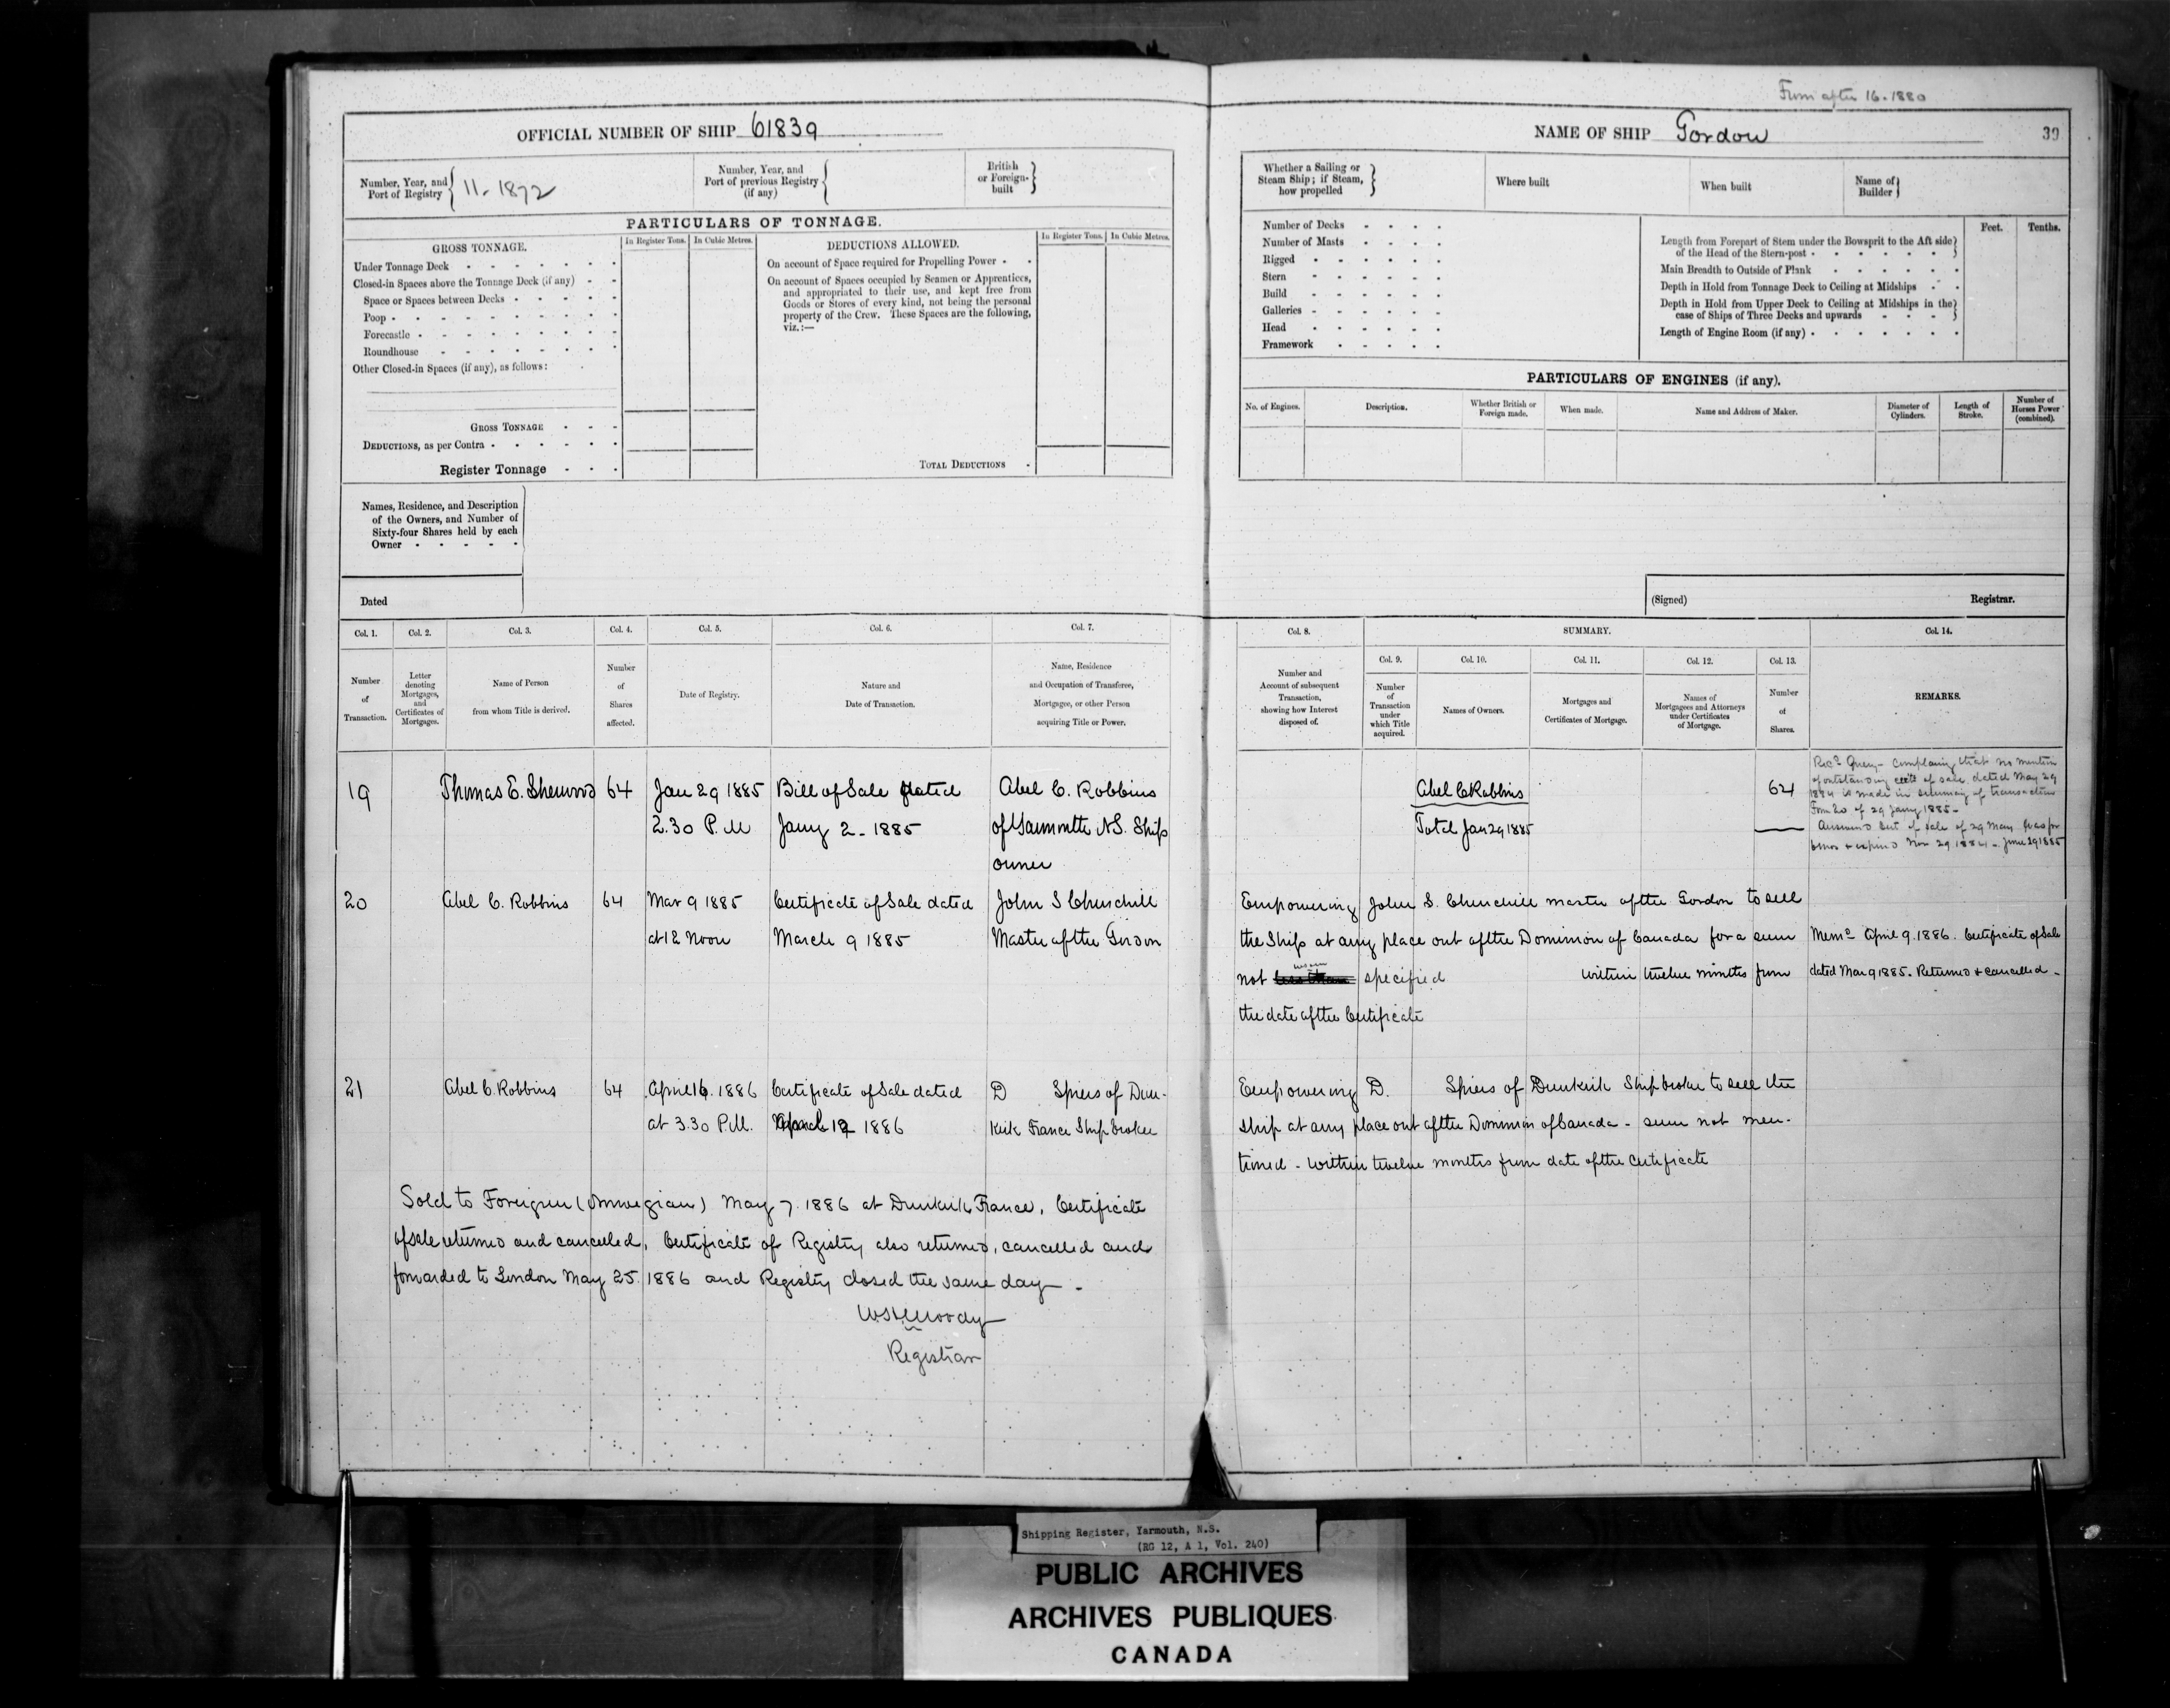 From after 16-1880
OFFICIAL NUMBER OF SHIP 61839
Number, Year, and Port of Registry 11-1872
Number, Year, and Port of previous Registry (if any)
British or Foreign-built
PARTICULARS OF TONNAGE.
GROSS TONNAGE. In Register Tons. In Cubic Metres.
Under Tonnage Deck
Closed-in Spaces above the Tonnage Deck (if any)
Space or Spaces between Decks
Poop
Forecastle
Roundhouse
Other Closed-in Spaces (if any), as follows:
GROSS TONNAGE
DEDUCTIONS, as per Contra
Register Tonnage
DEDUCTIONS ALLOWED. In Register Tons. In Cubic Metres.
On account of Space required for Propelling Power
On account of Spaces occupied by Seamen or Apprentices,
and appropriated to their use, and kept free from
Goods or Stores of every kind, not being the personal
property of the Crew. These Spaces are the following,
viz.:—
TOTAL DEDUCTIONS
Names, Residence, and Description
of the Owners, and Number of
Sixty-four Shares held by each
Owner
Dated
NAME OF SHIP Gordon 39
Whether a Sailing or Steam Ship; if Steam, how propelled
Where built
When built
Name of Builder
Number of Decks
Number of Masts
Rigged
Stern
Build
Galleries
Head
Framework
Feet. Tenths.
Length from Forepart of Stem under the Bowsprit to the Aft side
of the Head of the Stern-post
Main Breadth to Outside of Plank
Depth in Hold from Tonnage Deck to Ceiling at Midships
Depth in Hold from Upper Deck to Ceiling at Midships in the
case of Ships of Three Decks and upwards
Length of Engine Room (if any)
PARTICULARS OF ENGINES (if any).
No. of Engines. Description. Whether British or Foreign made. When made. Name and Address of Maker. Diameter of Cylinders. Length of Stroke. Number of Horses Power (combined).
(Signed) Registrar.
Col. 1. Col. 2. Col. 3. Col. 4. Col. 5. Col. 6. Col. 7.
Number of Transaction.
Letter denoting Mortgages, and Certificates of Mortgages.
Name of Person from whom Title is derived.
Number of Shares affected.
Date of Registry.
Nature and Date of Transaction.
Name, Residence and Occupation of Transferee, Mortgagee, or other Person acquiring Title or Power.
Col. 8. SUMMARY. Col. 14.
Col. 9. Col. 10. Col. 11. Col. 12. Col. 13.
Number and Account of subsequent Transaction, showing how Interest disposed of.
Number of Transaction under which Title acquired.
Names of Owners.
Mortgages and Certificates of Mortgage.
Names of Mortgagees and Attorneys under Certificates of Mortgage.
Number of Shares.
REMARKS.
19 Thomas E. Sherwood 64 Jan 29 1885 Bill of Sale dated Abel C. Robbins
2.30 P.M Jany 2-1885 of Yarmouth N.S. Ship
owner
Abel C Robbins 64
Total Jan 29 1885
Recd Query- complaing that no mention
of outstanding certe of sale dated May 29
1884 is made in summary of transaction
Form 20 of 29 Jany 1885-
Answered Cert of sale of 29 May was for
6 mos & expired Nov 29 1884 - June 29 1885
20 Abel C. Robbins 64 Mar 9 1885 Certificate of Sale dated John S Churchill
at 12 Noon March 9 1885 Master of the Gordon
Empowering John S. Churchill master of the Gordon to sell
the Ship at any place out of the Dominion of Canada for a sum
not specified within twelve months from
the date of the Certificate
Memo April 9. 1886. Certificate of Sale
dated Mar 9 1885. Returned & cancelled-
21 Abel C. Robbins 64 April 16. 1886 Certificate of Sale dated D Spiers of Dun-
at 3.30 P.M. 1886 kirk France Shipbroker
Empowering D. Spiers of Dunkirk Shipbroker to sell the
Ship at any place out of the Dominion of Canada - sum not men-
tioned - within twelve months from date of the Certificate
Sold to Foreigner (Norwegian) May 7. 1886 at Dunkirk France. Certificate
of sale returned and cancelled. Certificate of Registry also returned, cancelled and
forwarded to London May 25. 1886 and Registry closed the same day -
Moody
Registrar
Shipping Register, Yarmouth, N.S.
(RG 12, A 1, Vol. 240)
PUBLIC ARCHIVES
ARCHIVES PUBLIQUES
CANADA